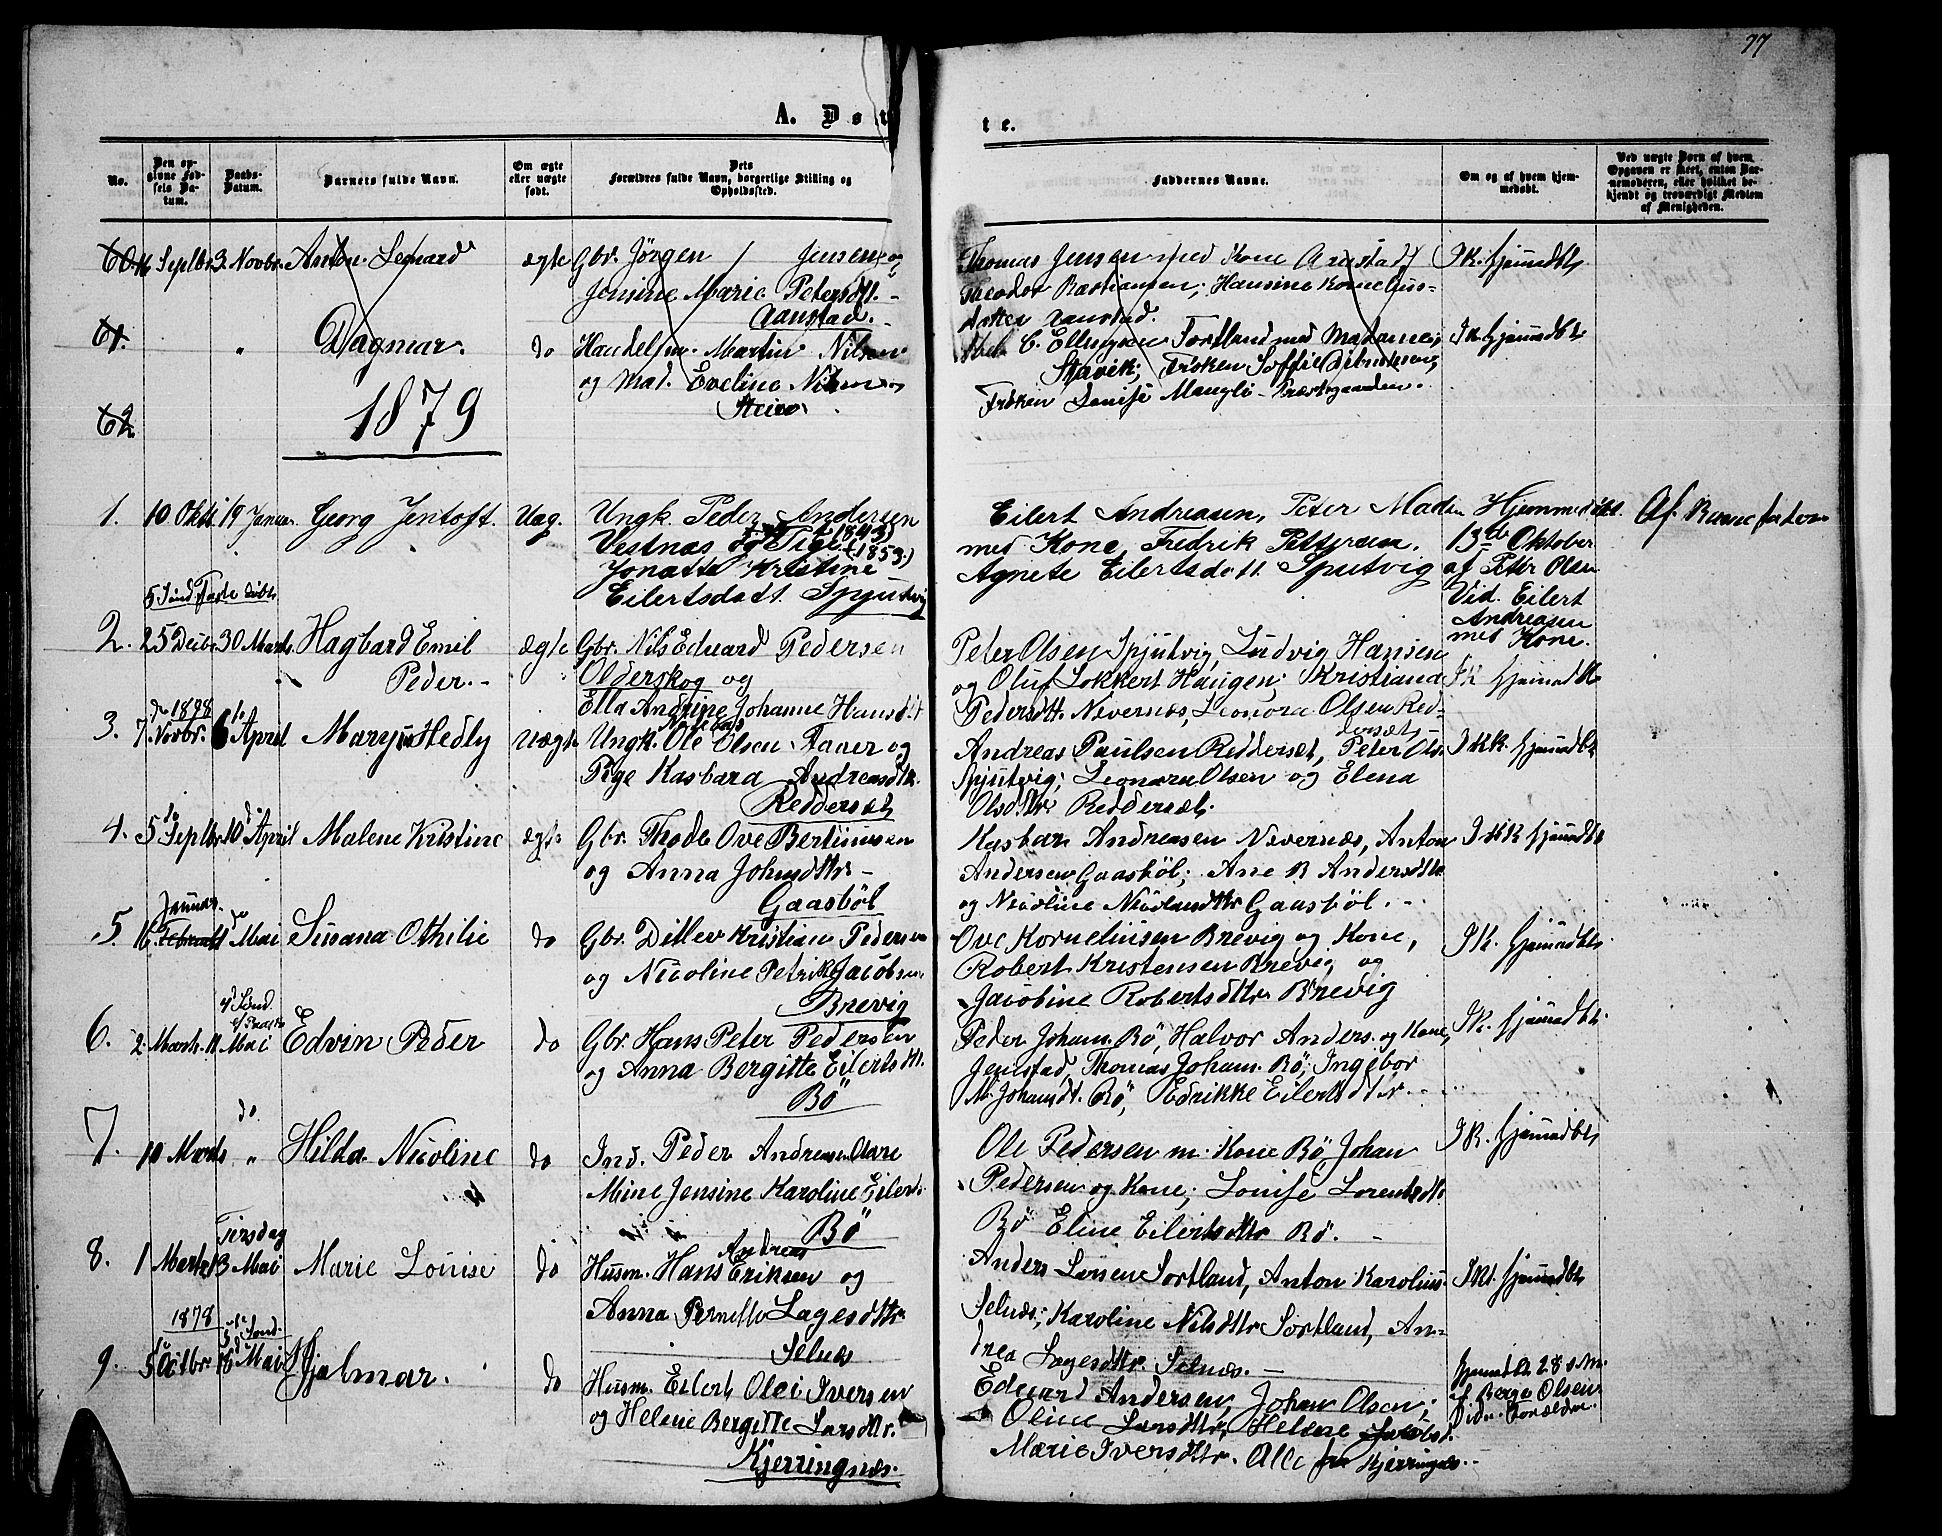 77
A. Døb
te.
No.
Den opgivne Fødsels Datum.
Daabs-Datum.
Barnets fulde Navn.
Om ægte eller uægte født.
Dets Forældres fulde Navn, borgerlige Stilling og Opholdssted.
Faddernes Navne.
Om og af hvem hjemmedøbt.
Ved uægte Børn af hvem Opgaven er skeet, enten Barnemoderen, eller hvilket bekjendt og troværdigt Medlem af Menigheden.
60 16 Septbr 3 Novbr. Anton Leonard ægte Gbr. Jörgen Jensen og
Jensine Marie Petersdtt. -
Aanstad.
Thomas Jensen med Kone Aanstad,
Theodor Bastiansen; Hansine Kornelius-
datter Aanstad.
I K. hjemmdbt
61. " Dagmar. do Handelsm. Martin Nilsen
og Mad. Eveline Nilsen
Steiro.
C. Ellingsen Sortland med Madame;
Stavik; Frøken Soffie
Frøken Louise - Præstegaarden.
I K hjemmdbt
62
1879
1. 10 Oktb. 19 Januar Georg Jentoft. Uæg. Ungk. Peder Andersen
Vestnæs (1843) og Pige (1853)
Kristine
Eilertsdatt. Spjutvig
Eilert Andreasen, Peter Madsen
med Kone, Fredrik Pettersen.
Agnete Eilertsdatt. Spjutvig
Hjemmedöbt
13de Oktober
af Peter Olsen
Vid. Eilert
Andreasen
med Kone.
Af Barnefaderen
5 Sönd Faste döbt
2. 25 Decbr. 30 Marts. Hagbard Emil
Peder. -
ægte Gbr. Nils Eduard Pedersen
Olderskog og
Ella Andrine Johanne Hansdtt
Peter Olsen Spjutvig, Ludvig Hansen
og Oluf Lokkert Haugen; Kristiane
Pedersdtt. Nevernæs, Leonora Olsen Red-
dersæt
I K hjemmdbt
3. 1878 7 Novbr. 6 April Marya Hedly Uægte Ungk. Ole Olsen og
Pige Kasbara Andreasdtt.
Reddersæt
Andreas Paulsen Reddersæt, Peter Ols.
Spjutvig; Leonora Olsen og Elena
Olsdttr Reddersæt.
I KK. hjemmdbt
4. 5 Septbr 10 April Malene Kristine ægte Gbr. Thode Ove Bertinusen
og Anna Johnsdttr -
Gaasböl
Kasbar Andreasen Nevernæs, Anton
Andersen Gaasböl; Ane B Andersdttr
og Nicoline Nicolaisdttr Gaasböl. -
I K K hjemmdbt
5. 16 Januar do Mai Susana Othilie do Gbr. Ditlev Kristian Pedersen
og Nicoline Petrik. Jacobsen
Brevig
Ove Korneliusen Brevig og Kone,
Robert Kristensen Brevig og
Jacobine Robertsdttr Brevig
I K. hjemmdbt.
4 Sönd
e/ Paaske
6. 2 Marts. 11 Mai Edvin Peder do Gbr Hans Peter Pedersen
og Anna Bergitte Eilertsdtt.
Bö
Peder Johans. Bö, Halvor Anders. og Kone,
Jenstad, Thomas Johans. Bö, Ingebor
M. Johansdt. Bö, Edrikke Eilertsdttr - -
I K. hjemmdbt.
do
7. 10 Marts " Hilda Nicoline do Ind. Peder Andreas Olare
Mine Jensine Karoline Eilerts.
Bö
Ole Pedersen m. Kone Bö, Johan
Pedersen og Kone; Louise Lorentsdtt
Bö Eline Eilertsdttr Bö. -
I K. hjemmdbt
Tirsdag
8. 1 Marts 13 Mai Marie Louise do Husm. Hans Andreas Eriksen og
Anna Pernille Lagesdttr
Selnæs
Anders Larsen Sortland, Anton Karolius.
Selnæs; Karoline Nilsdttr Sortland, An-
drea Lagesdttr. Selnæs. -
I K. hjemmdbt
1878
Sönd.
9. 5 Octbr. 18 Mai Hjalmar. do Husm. Eilert Olei Iversen
og Helene Bergitte Larsdttr.
Kjerringnæs.
Eduard Andersen, Johan Olsen;
Oline Larsdttr, Helene Jacobsd.
Marie Iversdttr. Alle fra Kjerringnæs. -
hjemmdbt 28 s. M.
af Berge Olsen
Vidn. Forældre.